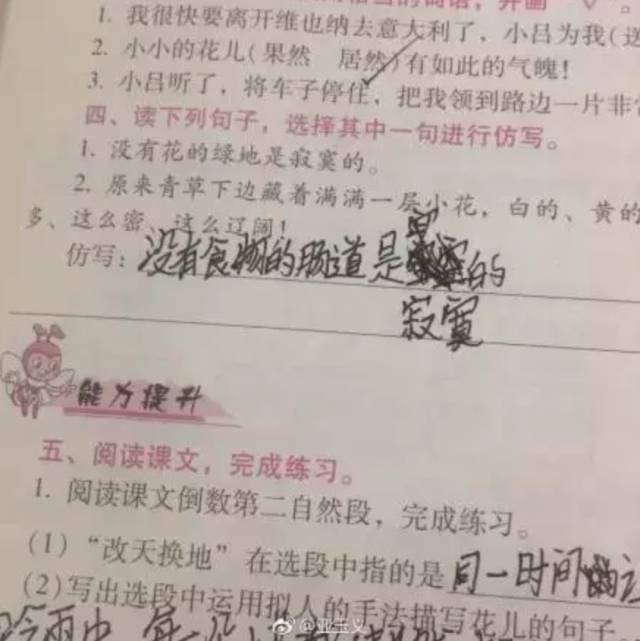 1. 我很快要离开维也纳去意大利了，小吕为我(送
2. 小小的花儿(果然 居然)有如此的气魄！
3. 小吕听了，将车子停住，把我领到路边一片非常
四、读下列句子，选择其中一句进行仿写。
1. 没有花的绿地是寂寞的。
2. 原来青草下边藏着满满一层小花，白的、黄的
多、这么密、这么辽阔！
仿写：没有食物的肠道是的
寂寞
能力提升
五、阅读课文，完成练习。
1. 阅读课文倒数第二自然段，完成练习。
(1)“改天换地”在选段中指的是同一时间
(2)写出选段中运用拟人的手法描写花儿的句子